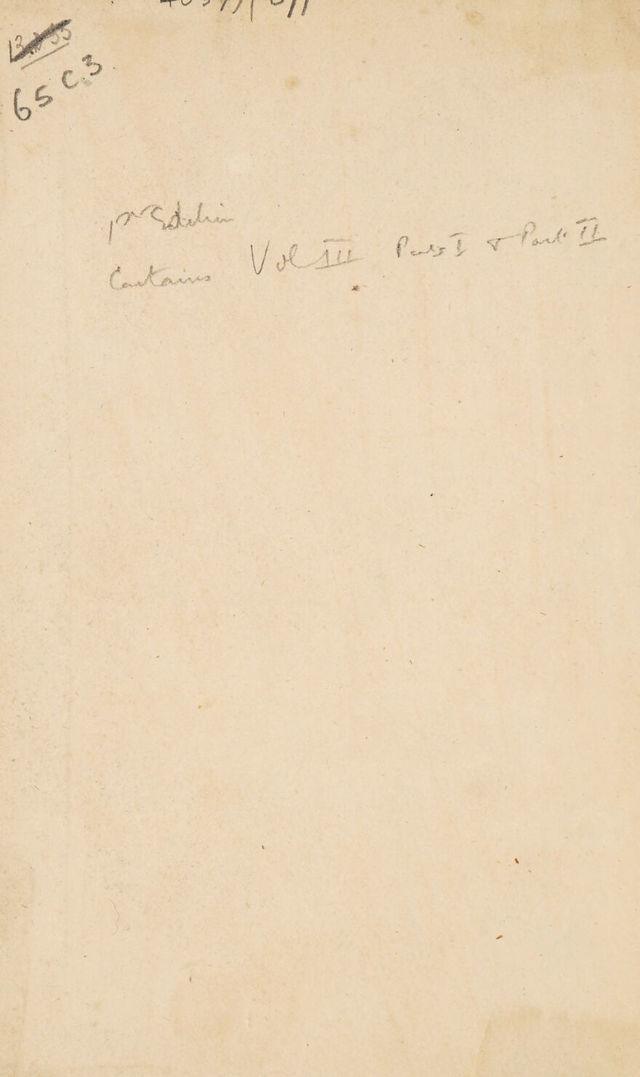 65 C.3
1st Edition
Contains Vol III Part I & Part II